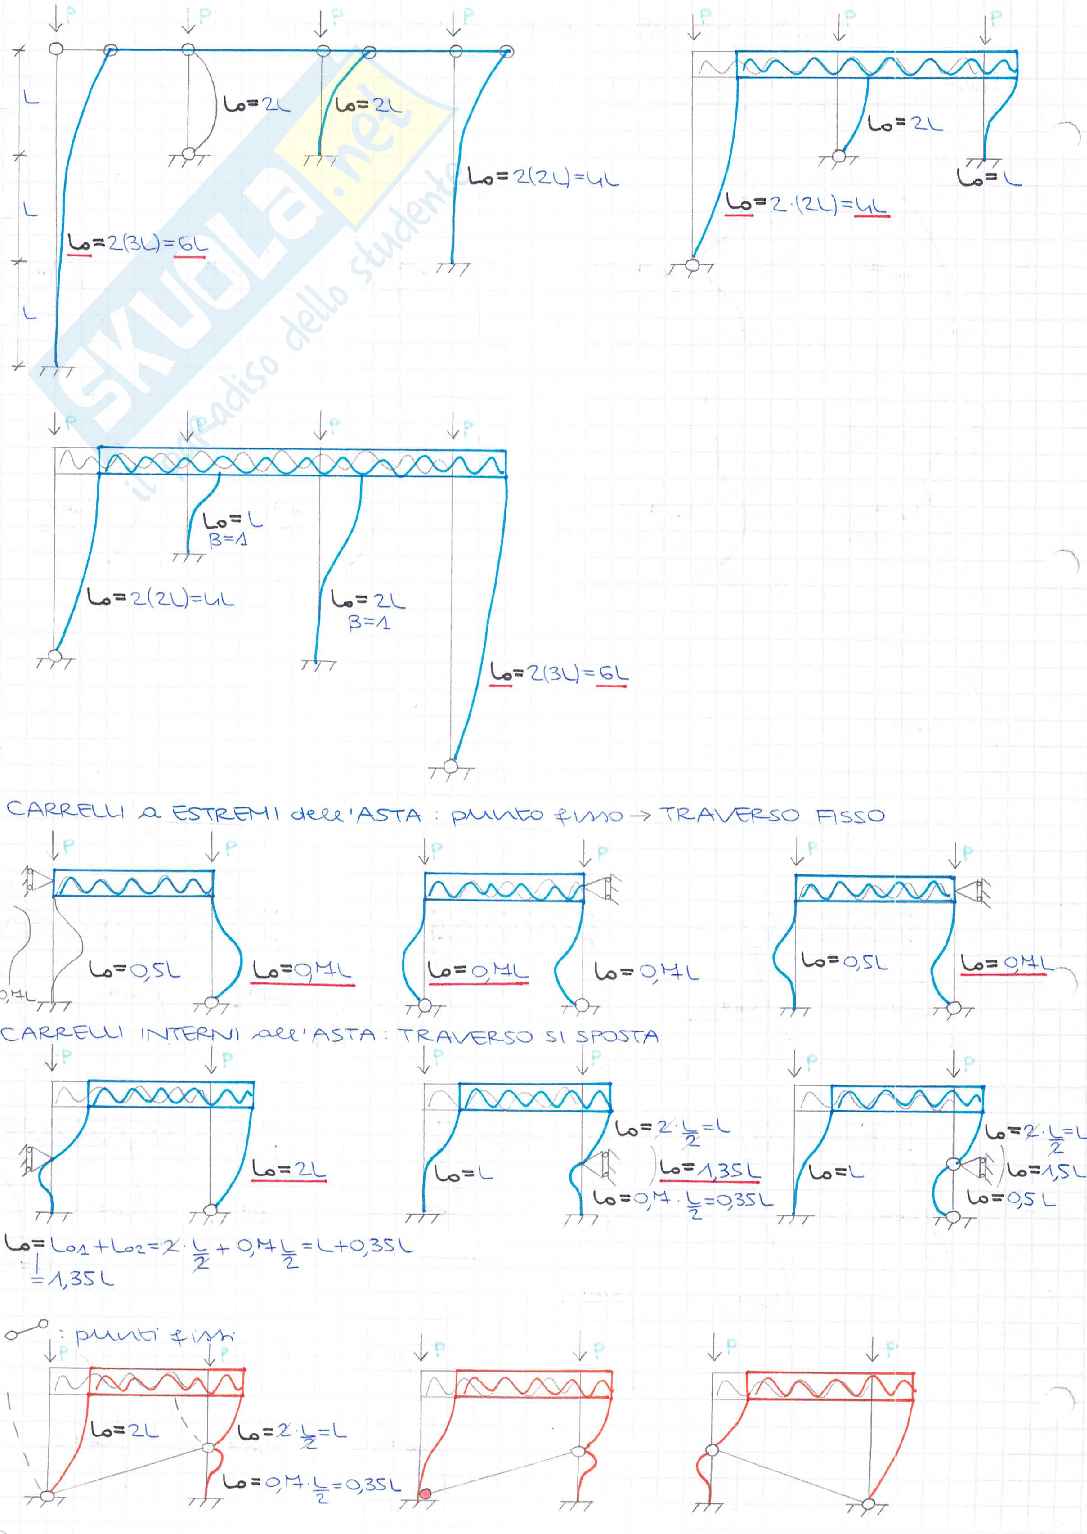 P P P P P P P
L
L
L
L₀=2L
L₀=2L
L₀=2(2L)=4L
L₀=2(3L)=6L
L₀=2L
L₀=L
L₀=2·(2L)=4L
SKUOLA.net
il paradiso dello studente
P P P P
L₀=L
β=1
L₀=2(2L)=4L
L₀=2L
β=1
L₀=2(3L)=6L
CARRELLI a ESTREMI dell'ASTA: punto fisso → TRAVERSO FISSO
P P P P P P
L₀=0,5L
L₀=0,7L
L₀=0,7L
L₀=0,7L
L₀=0,5L
L₀=0,7L
0,7L
CARRELLI INTERNI all'ASTA: TRAVERSO SI SPOSTA
P P P P P P
L₀=2L
L₀=L
L₀=2·L/2=L
L₀=1,35L
L₀=0,7·L/2=0,35L
L₀=L
L₀=2·L/2=L
L₀=1,5L
L₀=0,5L
L₀=L₀₁+L₀₂=2·L/2+0,7L/2=L+0,35L
=1,35L
: punti fissi
P P P P P P
L₀=2L
L₀=2·L/2=L
L₀=0,7·L/2=0,35L